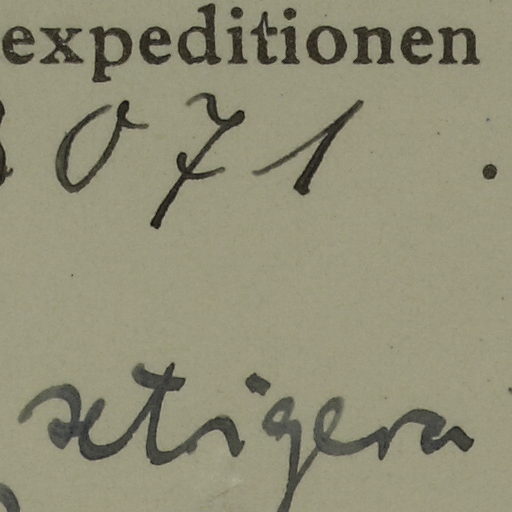 expeditionen
071.
setigera